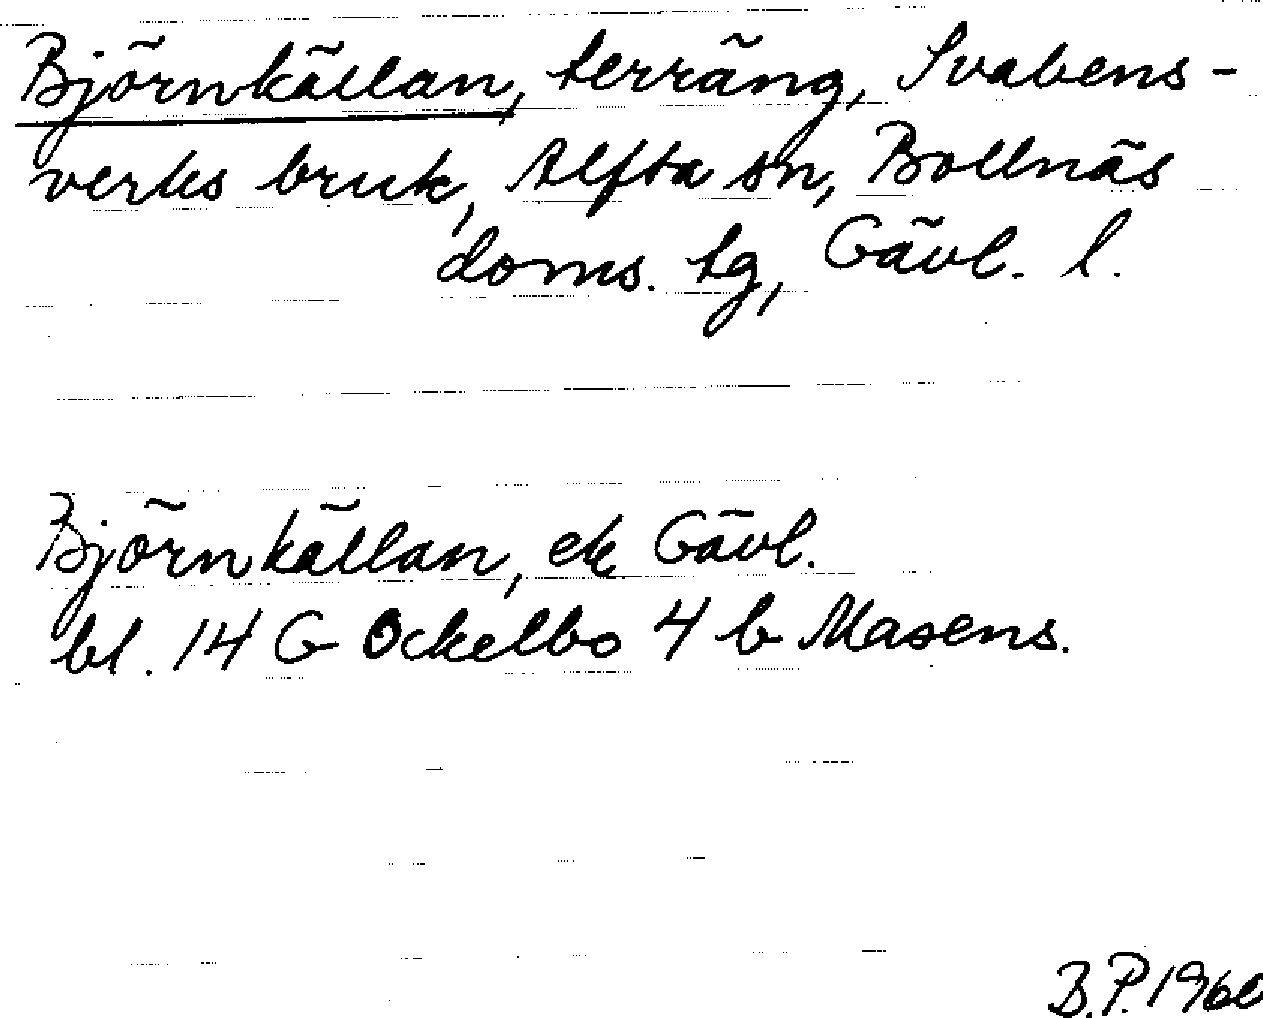 Björnkällan, terräng, Svabens-
verks bruk, Alfta sn, Bollnäs
doms. tg, Gävl. l.
Björnkällan, ek Gävl.
bl. 14 G Ockelbo 4 b Masens.
B.P. 1960